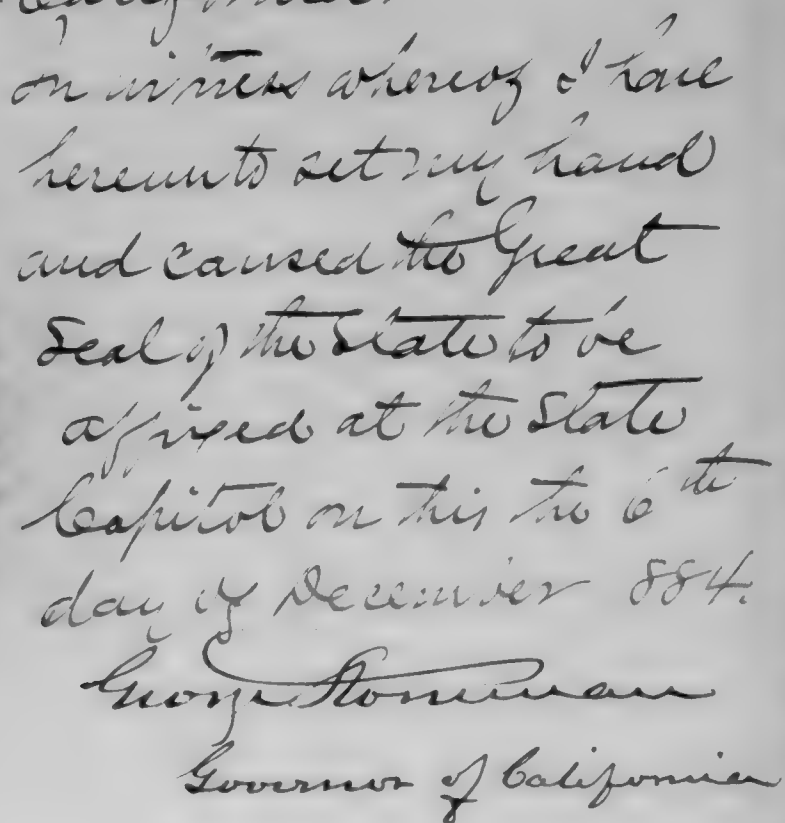 In witness whereof I have
hereunto set my hand
and caused the Great
Seal of the State to be
affixed at the State
Capitol on this the 6th
day of December 884.
George Stoneman
Governor of California